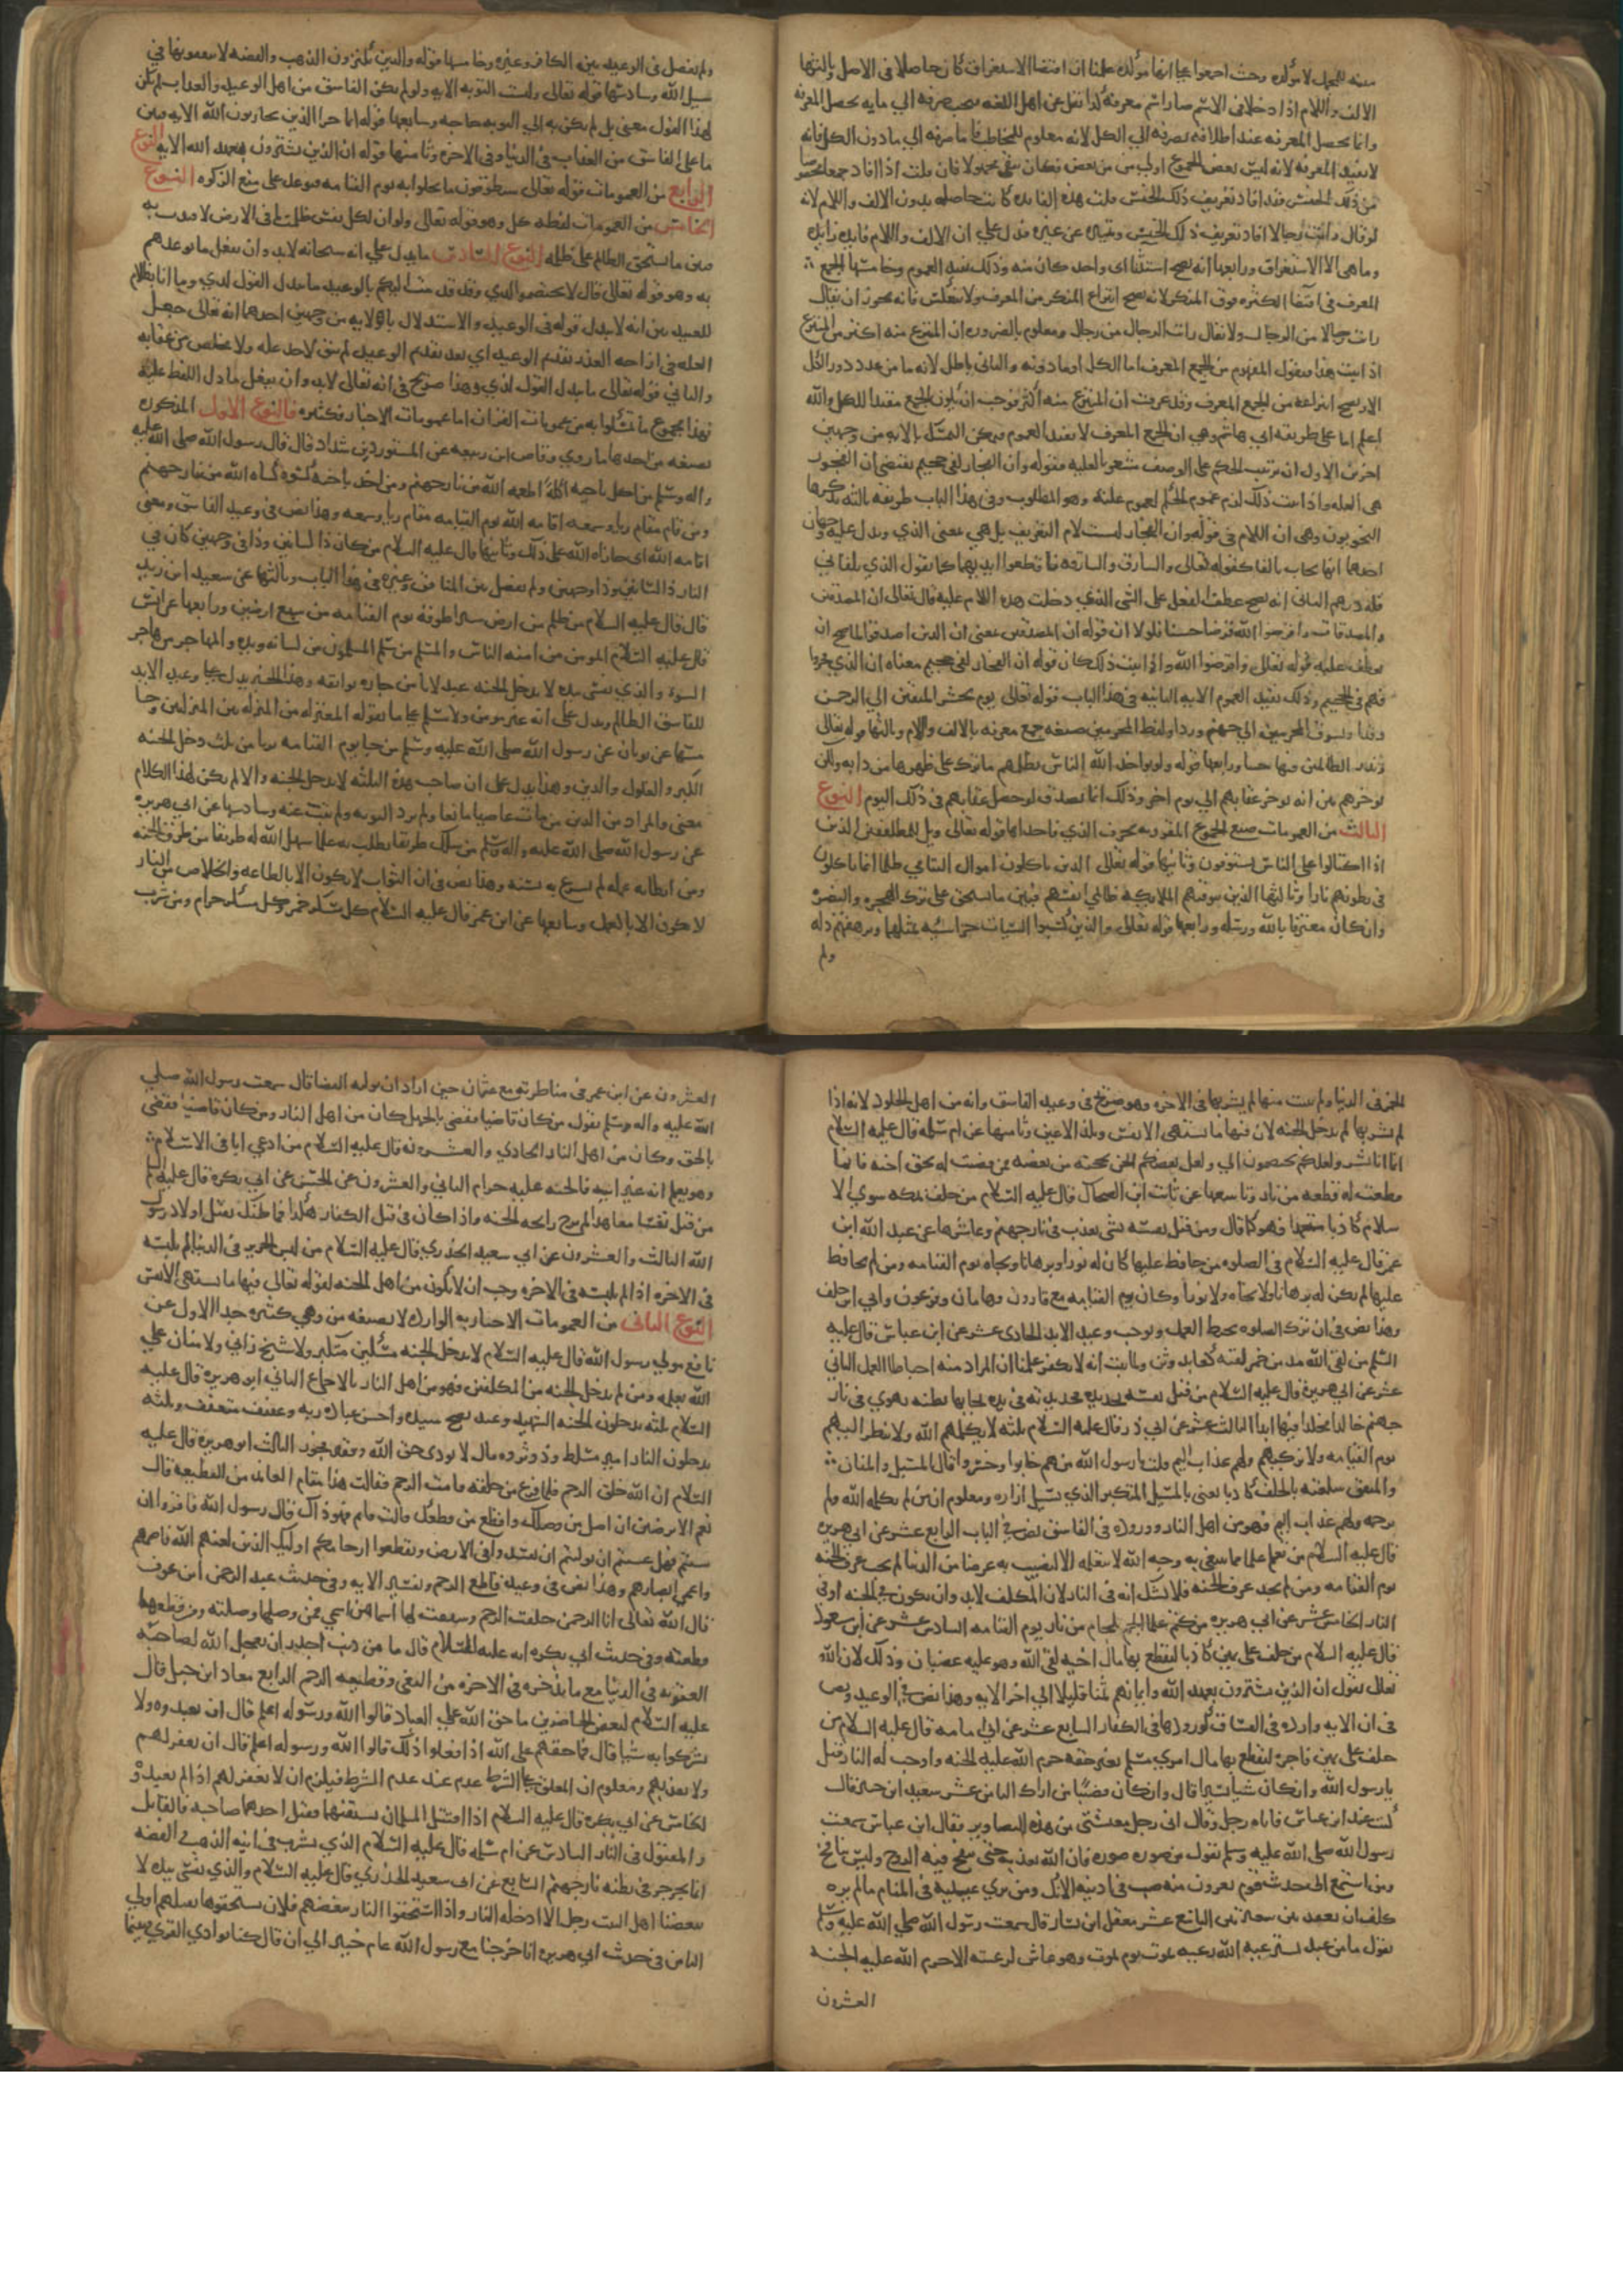 منه للجمل لا مؤكده وحيث اجمعوا على انها مؤكده علمنا ان اقتضا الاستغراق كان حاصلا فى الاصل وثالثها
الالف واللام اذا دخلا فى الاسم صار الاسم معرفة كذا نقل عن اهل اللغه فيجب صرفه الى ما به يحصل المعرفه
وانما يحصل المعرفه عند اطلاقه بصرفه الى الكل لانه معلوم للمخاطب فاما صرفه الى ما دون الكل فانه
لا يفيد المعرفه لانه ليس بعض الجموع اولى من بعض فكان يبقى مجهولا فان قلت اذا افاد جمعا مخصوصا
من ذلك الجنس فقد افاد تعريف ذلك الجنس قلت هذه الفايده كانت حاصله بدون الالف واللام لانه
لو قال رايت رجالا افاد تعريف ذلك الجنس وتميزه عن غيره فدل على ان الالف واللام فايده زايده
وما هى الا الاستغراق ورابعها انه يصح استثنا اى واحد كان منه وذلك يفيد العموم وخامسها الجمع
المعرف فى اقتضا الكثره فوق المنكر لانه يصح انتزاع المنكر من المعرف ولا ينعكس فانه يجوز ان يقال
رايت رجالا من الرجال ولا يقال رايت الرجال من رجال ومعلوم بالضروره ان المنتزع منه اكثر من المنتزع
اذا ثبت هذا فنقول المفهوم من الجمع المعرف اما الكل او ما دونه والثانى باطل لانه ما من عدد دون الكل
الا ويصح انتزاعه من الجمع المعرف وقد عرفت ان المنتزع منه اكثر فوجب ان يكون الجمع مفيدا للكل والله
اعلم اما على طريقه ابى هاشم وهى ان الجمع المعرف لا يفيد العموم فيمكن التمسك بالايه من وجهين
اخرين الاول ان ترتيب الحكم على الوصف مشعر بالعليه فقوله وان الفجار لفى جحيم يقتضى ان الفجور
هى العله واذا ثبت ذلك لزم عموم الحكم لعموم علته وهو المطلوب وفى هذا الباب طريقه ثالثه يذكرها
النحويون وهى ان اللام فى قوله وان الفجار ليست لام التعريف بل هى بمعنى الذي ويدل عليه وجهان
احدهما انها تجاب بالفا كقوله تعالى والسارق والسارقه فاقطعوا ايديهما كما تقول الذي يلقانى
فله درهم الثانى انه يصح عطف الفعل على الشى الذي دخلت هذه اللام عليه قال تعالى ان المصدقين
والمصدقات واقرضوا الله قرضا حسنا فلولا ان قوله ان المصدقين بمعنى ان الذين اصدقوا لما صح ان
يعطف عليه قوله تعالى واقرضوا الله واذا ثبت ذلك كان قوله ان الفجار لفى جحيم معناه ان الذي فجروا
فهم فى الجحيم وذلك يفيد العموم الايه الثانيه فى هذا الباب قوله تعالى يوم يحشر المتقين الى الرحمن
وفدا ونسوق المجرمين الى جهنم وردا ولفظ المجرمين صيغه جمع معرفه بالالف واللام وثالثها قوله تعالى
ونذر الظالمين فيها جثيا ورابعها قوله ولو يواخذ الله الناس بظلمهم ما ترك على ظهرها من دابه ولكن
يوخرهم بين انه يوخر عقابهم الى يوم اخر وذلك انما يصدق لو حصل عقابهم فى ذلك اليوم النوع
الثالث من العمومات صيغ الجموع المقرونه بحرف الذي فاحداها قوله تعالى ويل للمطففين الذين
اذا اكتالوا على الناس يستوفون وثانيها قوله تعالى الذين ياكلون اموال اليتامى ظلما انما ياكلون
فى بطونهم نارا وثالثها الذين توفيهم الملايكه ظالمى انفسهم فبين ما يستحق على ترك الهجره والنصره
وان كان معترفا بالله ورسله ورابعها قوله تعالى والذين كسبوا السيات جزا سيئه بمثلها وترهقهم ذله
ولم
ولم يفصل فى الوعيد بين الكافر وغيره وخامسها قوله والذين يكنزون الذهب والفضه ولا ينفقونها فى
سبيل الله وسادسها قوله تعالى وليست التوبه الايه ولو لم يكن الفاسق من اهل الوعيد والعذاب لم يكن
لهذا القول معنى بل لم يكن به الى التوبه حاجه وسابعها قوله انما جزا الذين يحاربون الله الايه فبين
ما على الفاسق من العذاب فى الدنيا وفى الاخره وثامنها قوله ان الذين يشترون بعهد الله الايه النوع
الرابع من العمومات قوله تعالى سيطوقون ما بخلوا به يوم القيامه فتوعد على منع الزكوه النوع
الخامس من العمومات لفظه كل وهو قوله تعالى ولو ان لكل نفس ظلمت ما فى الارض لافتدت به
فبين ما يستحق الظالم على ظلمه النوع السادس ما يدل على انه سبحانه لا بد وان يفعل ما توعدهم
به وهو قوله تعالى قال لا تختصموا لدي وقد قدمت اليكم بالوعيد ما يبدل القول لدي وما انا بظلام
للعبيد بين انه لا يبدل قوله فى الوعيد والاستدلال بالايه من وجهين احدهما انه تعالى جعل
العله فى ازاحه العذر تقديم الوعيد اي بعد تقديم الوعيد لم يبق لاحد عله ولا مخلص من عقابه
والثانى قوله تعالى ما يبدل القول لدي وهذا صريح فى انه تعالى لا بد وان يفعل ما دل اللفظ عليه
فهذا مجموع ما تمسكوا به من عمومات القران اما عمومات الاخبار فكثيره فالنوع الاول المذكوره
بصيغه من احدها ما روي وقاص ابن ربيعه عن المستورد بن شداد قال قال رسول الله صلى الله عليه
واله وسلم من اكل باخيه اكلة اطعمه الله من نار جهنم ومن اخذ باخيه كسوه كساه الله من نار جهنم
ومن قام مقام ريا وسمعه اقامه الله يوم القيامه مقام ريا وسمعه وهذا نص فى وعيد الفاسق ومعنى
اقامه الله اى جازاه الله على ذلك وثانيها قال عليه السلام من كان ذا لسانين وذا وجهين كان فى
النار ذا لسانين وذا وجهين ولم يفصل بين المنافق وغيره فى هذا الباب وثالثها عن سعيد ابن زيد
قال قال عليه السلام من ظلم من ارض شبرا طوقه يوم القيامه من سبع ارضين ورابعها عن انس
قال عليه السلام المومن من امنه الناس والمسلم من سلم المسلمون من لسانه ويده والمهاجر من هاجر
السوء والذي نفسى بيده لا يدخل الجنه عبد لا يامن جاره بوايقه وهذا الخبر يدل على وعيد الابد
للفاسق الظالم ويدل على انه غير مومن ولا مسلم على ما يقوله المعتزله من المنزله بين المنزلتين وخا
مسها عن ثوبان عن رسول الله صلى الله عليه وسلم من جا يوم القيامه بريا من ثلث دخل الجنه
الكبر والغلول والدين وهذا يدل على ان صاحب هذه الثلثه لا يدخل الجنه والا لم يكن لهذا الكلام
معنى والمراد من الدين من مات عاصيا مانعا ولم يرد التوبه ولم يتب عنه وسادسها عن ابى هريره
عن رسول الله صلى الله عليه واله وسلم من سلك طريقا يطلب به علما سهل الله له طريقا من طرق الجنه
ومن ابطا به عمله لم يسرع به نسبه وهذا نص فى ان الثواب لا يكون الا بالطاعه والخلاص من النار
لا يكون الا بالعمل وسابعها عن ابن عمر قال عليه السلام كل مسكر خمر وكل مسكر حرام ومن شرب
الخمر فى الدنيا ولم يتب منها لم يشربها فى الاخره وهو صريح فى وعيد الفاسق وانه من اهل الخلود لانه اذا
لم يشربها لم يدخل الجنه لان فيها ما تشتهى الانفس وتلذ الاعين وثامنها عن ام سلمه قال عليه السلام
انما انا بشر ولعلكم تختصمون الي ولعل بعضكم الحن بحجته من بعض فمن قضيت له بحق اخيه فانما
قطعت له قطعه من نار وتاسعها عن ثابت ابن الضحاك قال عليه السلام من حلف بمله سوى الا
سلام كاذبا متعمدا فهو كما قال ومن قتل نفسه بشى يعذب فى نار جهنم وعاشرها عن عبد الله ابن
عمر قال عليه السلام فى الصلوه من حافظ عليها كان له نورا وبرهانا ونجاه يوم القيامه ومن لم يحافظ
عليها لم يكن له برهانا ولا نجاه ولا نورا وكان يوم القيامه مع قارون وهامان وفرعون وابي ابن خلف
وهذا نص فى ان ترك الصلوه يحبط العمل ويوجب وعيد الابد الحادى عشر عن ابن عباس قال عليه
السلم من لقى الله مدمن خمر لقيه كعابد وثن ولما ثبت انه لا يكفر علمنا ان المراد منه احباط العمل الثانى
عشر عن ابى هريره قال عليه السلام من قتل نفسه بحديده فحديدته فى يده يجا بها بطنه يهوي فى نار
جهنم خالدا مخلدا فيها ابدا الثالث عشر عن ابى ذر قال عليه السلام ثلثه لا يكلمهم الله ولا ينظر اليهم
يوم القيامه ولا يزكيهم ولهم عذاب اليم قلت يا رسول الله من هم خابوا وخسروا قال المسبل والمنان
والمنفق سلعته بالحلف كاذبا يعنى بالمسبل المتكبر الذي يسبل ازاره ومعلوم ان من لم يكلمه الله ولم
يرحمه ولهم عذاب اليم فهو من اهل النار ووروده فى الفاسق نص فى الباب الرابع عشر عن ابى هريره
قال عليه السلام من تعلم علما مما يبتغى به وجه الله لا يتعلمه الا ليصيب به عرضا من الدنيا لم يجد عرف الجنه
يوم القيامه ومن لم يجد عرف الجنه فلا شك انه فى النار لان المكلف لا بد وان يكون فى الجنه او فى
النار الخامس عشر عن ابى هريره من كتم علما الجم بلجام من نار يوم القيامه السادس عشر عن ابن مسعود
قال عليه السلام من حلف على يمين كاذبا ليقطع بها مال اخيه لقى الله وهو عليه غضبان وذلك لان الله
تعالى يقول ان الذين يشترون بعهد الله وايمانهم ثمنا قليلا الى اخر الايه وهذا نص فى الوعيد ونص
فى ان الايه وارده فى الفساق كورودها فى الكفار السابع عشر عن ابى امامه قال عليه السلام من
حلف على يمين فاجره ليقطع بها مال امرى مسلم بغير حقه حرم الله عليه الجنه واوجب له النار قيل
يا رسول الله وان كان شيا يسيرا قال وان كان قضيبا من اراك الثامن عشر سعيد ابن جبير قال
كنت عند ابن عباس فاتاه رجل وقال انى رجل معيشتى من هذه التصاوير فقال ابن عباس سمعت
رسول الله صلى الله عليه وسلم يقول من صور صوره فان الله يعذبه حتى ينفخ فيه الروح وليس بنافخ
ومن استمع الى حديث قوم يفرون منه صب فى اذنيه الانك ومن يري عينيه فى المنام ما لم يره
كلف ان يعقد بين شعيرتين التاسع عشر معقل ابن يسار قال سمعت رسول الله صلى الله عليه وسلم
يقول ما من عبد يسترعيه الله رعيه يموت يوم يموت وهو غاش لرعيته الا حرم الله عليه الجنه
العشرون
العشرون عن ابن عمر فى مناظرته مع عثمان حين اراد ان يوليه القضا قال سمعت رسول الله صلى
الله عليه واله وسلم يقول من كان قاضيا فقضى بالجهل كان من اهل النار ومن كان قاضيا فقضى
بالحق وكان من اهل النار الحادي والعشرون قال عليه السلام من ادعى ابا فى الاسلام
وهو يعلم انه غير ابيه فالجنه عليه حرام الثانى والعشرون عن الحسن عن ابى بكره قال عليه السلم
من قتل نفسا معاهدا لم يرح رايحه الجنه واذا كان فى قتل الكفار هكذا فما ظنك بقتل اولاد رسول
الله الثالث والعشرون عن ابى سعيد الخدري قال عليه السلام من لبس الحرير فى الدنيا لم يلبسه
فى الاخره اذا لم يلبسه فى الاخره وجب ان لا يكون من اهل الجنه لقوله تعالى فيها ما تشتهى الانفس
النوع الثانى من العمومات الاخباريه الوارده لا بصيغه من وهى كثيره جدا الاول عن
نافع مولى رسول الله قال عليه السلام لا يدخل الجنه مسكين متكبر ولا شيخ زانى ولا منان على
الله بعمله ومن لم يدخل الجنه من المكلفين فهو من اهل النار بالاجماع الثانى ابو هريره قال عليه
السلام ثلثه يدخلون الجنه الشهيد وعبد نصح سيده واحسن عباده ربه وعفيف متعفف وثلثه
يدخلون النار امير مسلط وذو ثروه مال لا يودى حق الله وفقير فخور الثالث ابو هريره قال عليه
السلام ان الله خلق الرحم فلما فرغ من خلقه قامت الرحم فقالت هذا مقام العايذ من القطيعه قال
نعم الا ترضين ان اصل من وصلك واقطع من قطعك قالت بلى قال فهو ذاك قال رسول الله فاقروا ان
شيتم فهل عسيتم ان توليتم ان تفسدوا فى الارض وتقطعوا ارحامكم اوليك الذين لعنهم الله فاصمهم
واعمى ابصارهم وهذا نص فى وعيد قاطع الرحم وتفسير الايه وفى حديث عبد الرحمن ابن عوف
قال الله تعالى انا الرحمن خلقت الرحم وشققت لها اسما من اسمى فمن وصلها وصلته ومن قطعها
قطعته وفى حديث ابى بكره انه عليه السلام قال ما من ذنب اجدر ان يعجل الله لصاحبه
العقوبه فى الدنيا مع ما يدخره فى الاخره من البغى وقطيعه الرحم الرابع معاذ ابن جبل قال
عليه السلام لبعض الحاضرين ما حق الله على العباد قالوا الله ورسوله اعلم قال ان يعبدوه ولا
يشركوا به شيا قال فما حقهم على الله اذا فعلوا ذلك قالوا الله ورسوله اعلم قال ان يغفر لهم
ولا يعذبهم ومعلوم ان المعلق على الشرط عدم عند عدم الشرط فيلزم ان لا يغفر لهم اذا لم يعبدوه
الخامس عن ابى بكره قال عليه السلام اذا اقتتل المسلمان بسيفيهما فقتل احدهما صاحبه فالقاتل
والمقتول فى النار السادس عن ام سلمه قال عليه السلام الذي يشرب فى انيه الذهب والفضه
انما يجرجر فى بطنه نار جهنم السابع عن ابى سعيد الخدري قال عليه السلام والذي نفسى بيده لا
يبغضنا اهل البيت رجل الا ادخله النار واذا استحقوا النار ببغضهم فلان يستحقوها بقتلهم اولى
الثامن فى حديث ابى هريره انا خرجنا مع رسول الله عام خيبر الى ان قال كنا بوادي القرى فبينما